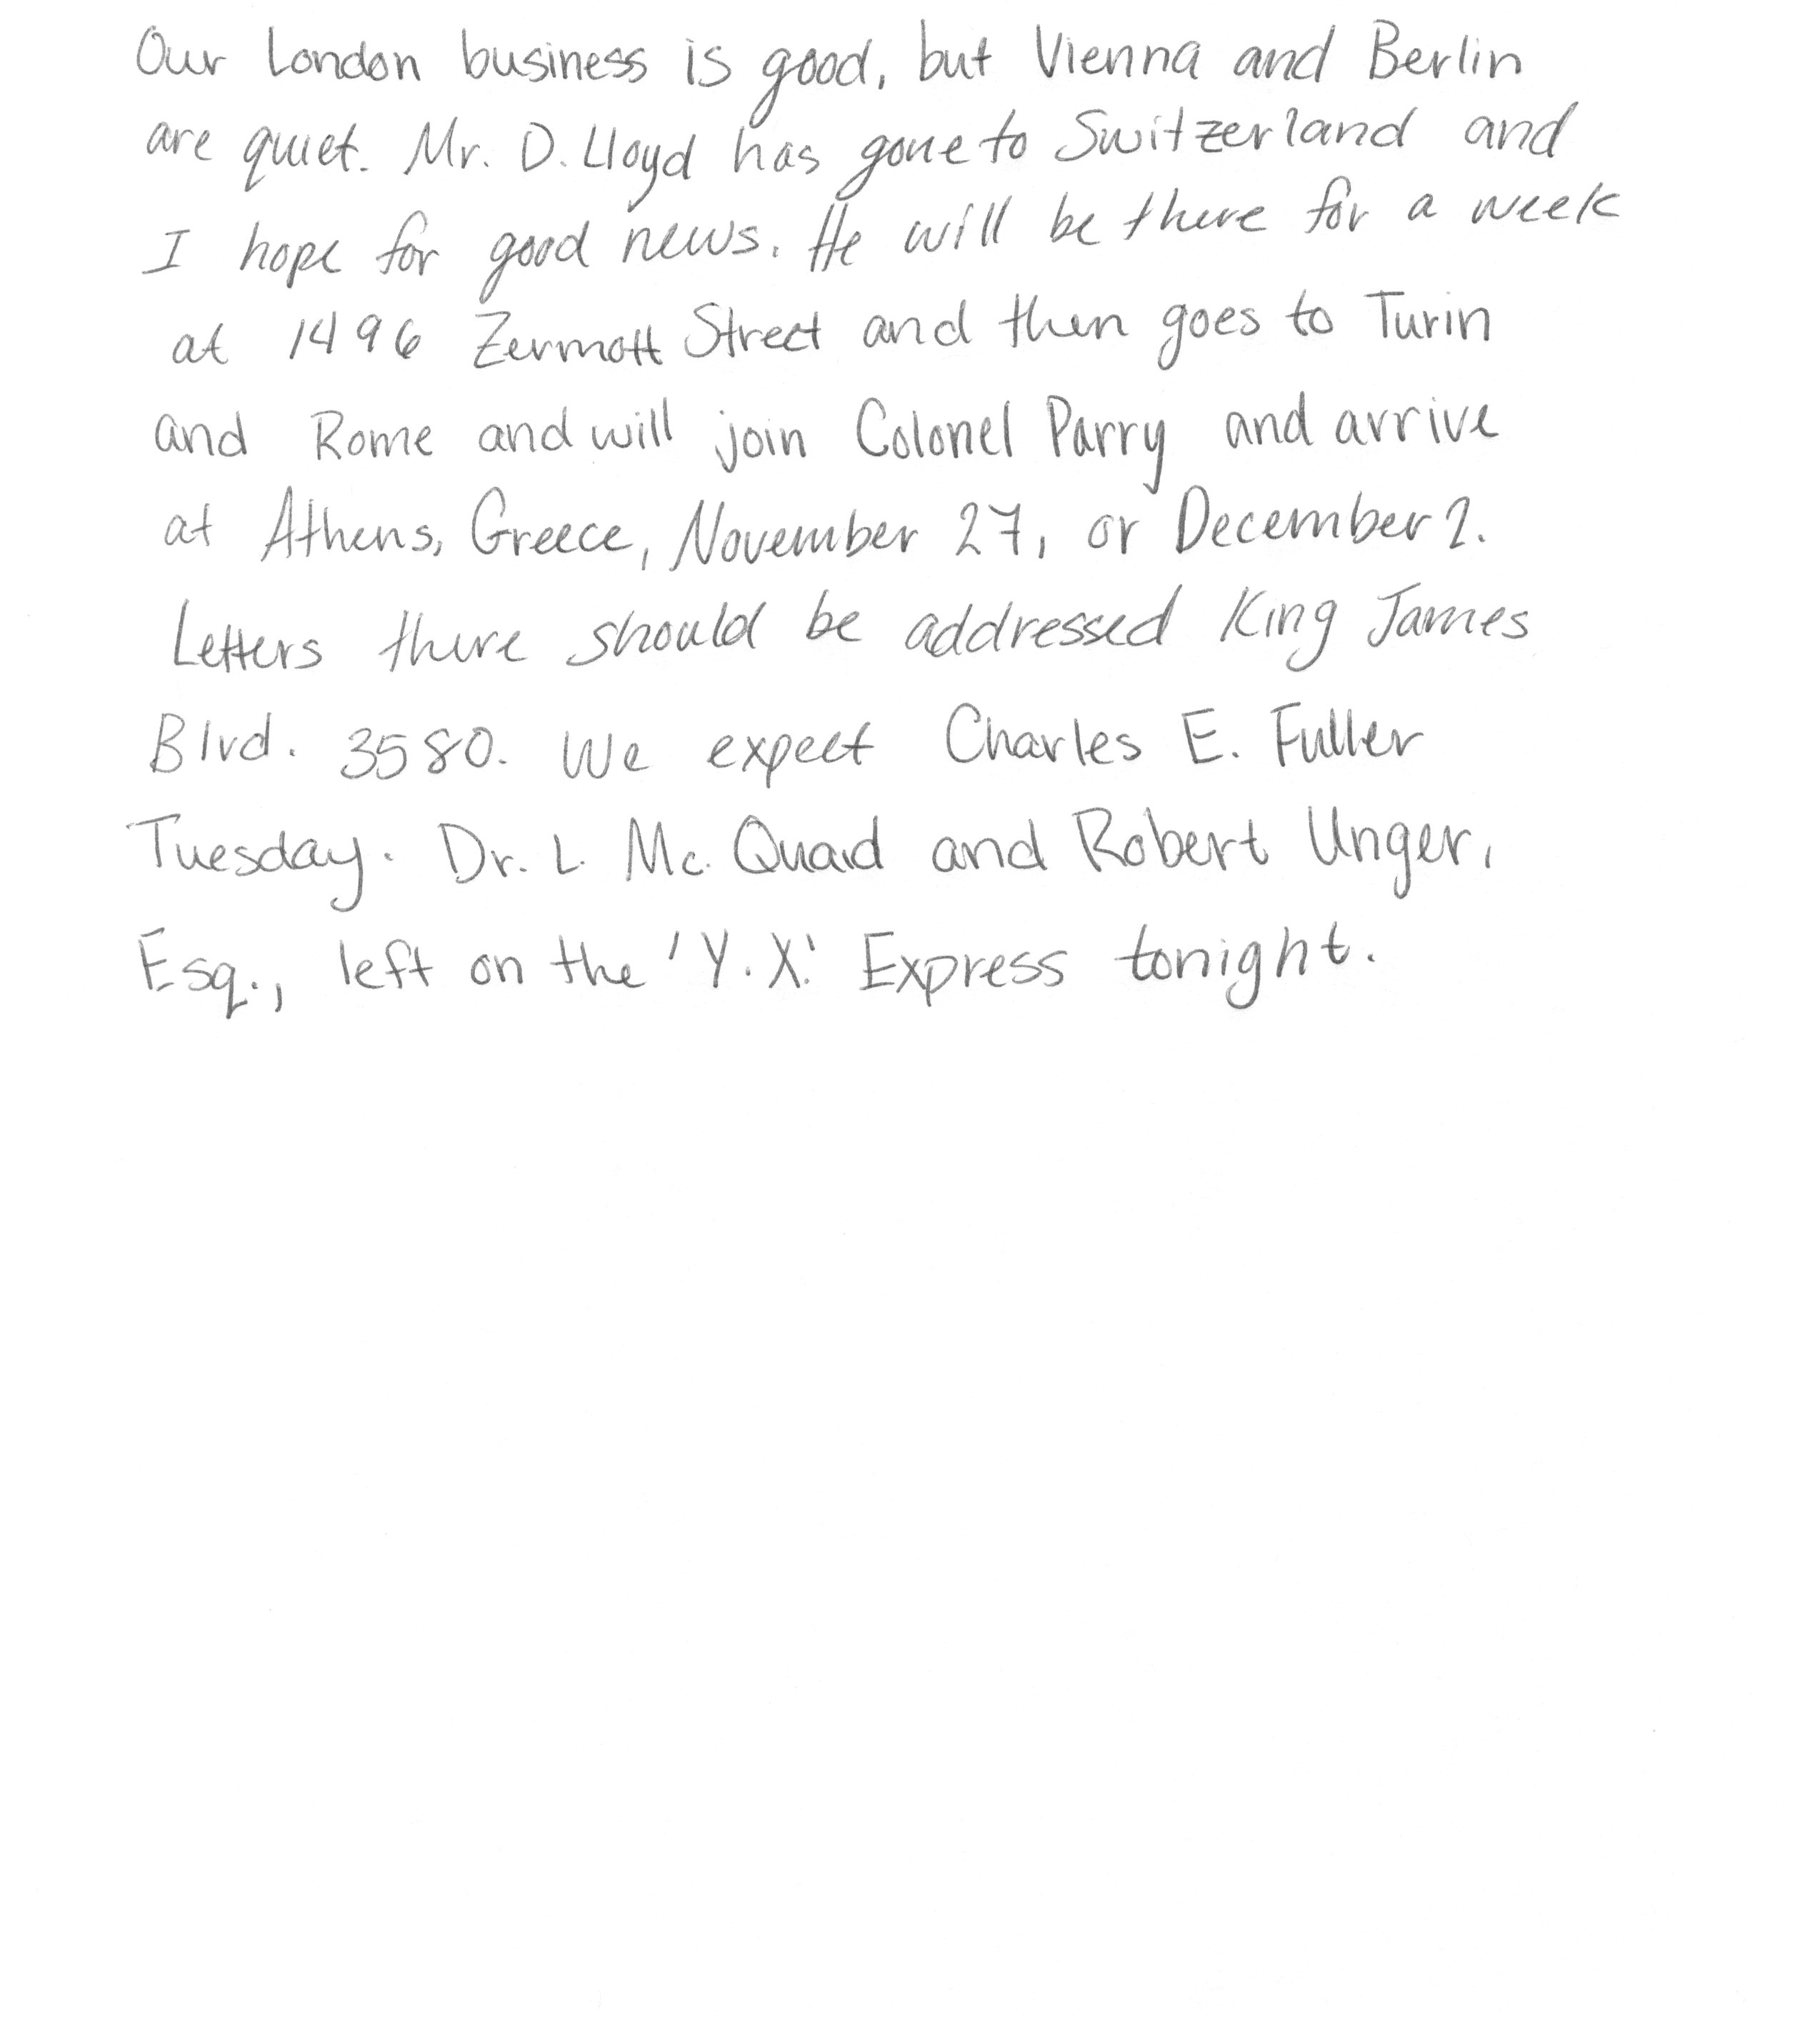 Our London business is good, but Vienna and Berlin
are quiet. Mr. D. Lloyd has gone to Switzerland and
I hope for good news. He will be there for a week
at 1496 Zermott Street and then goes to Turin
and Rome and will join Colonel Parry and arrive
at Athens, Greece, November 27, or December 2.
Letters there should be addressed King James
Blvd. 3580. We expect Charles E. Fuller
Tuesday. Dr. L. Mc. Quaid and Robert Unger,
Esq., left on the 'Y.X.' Express tonight.